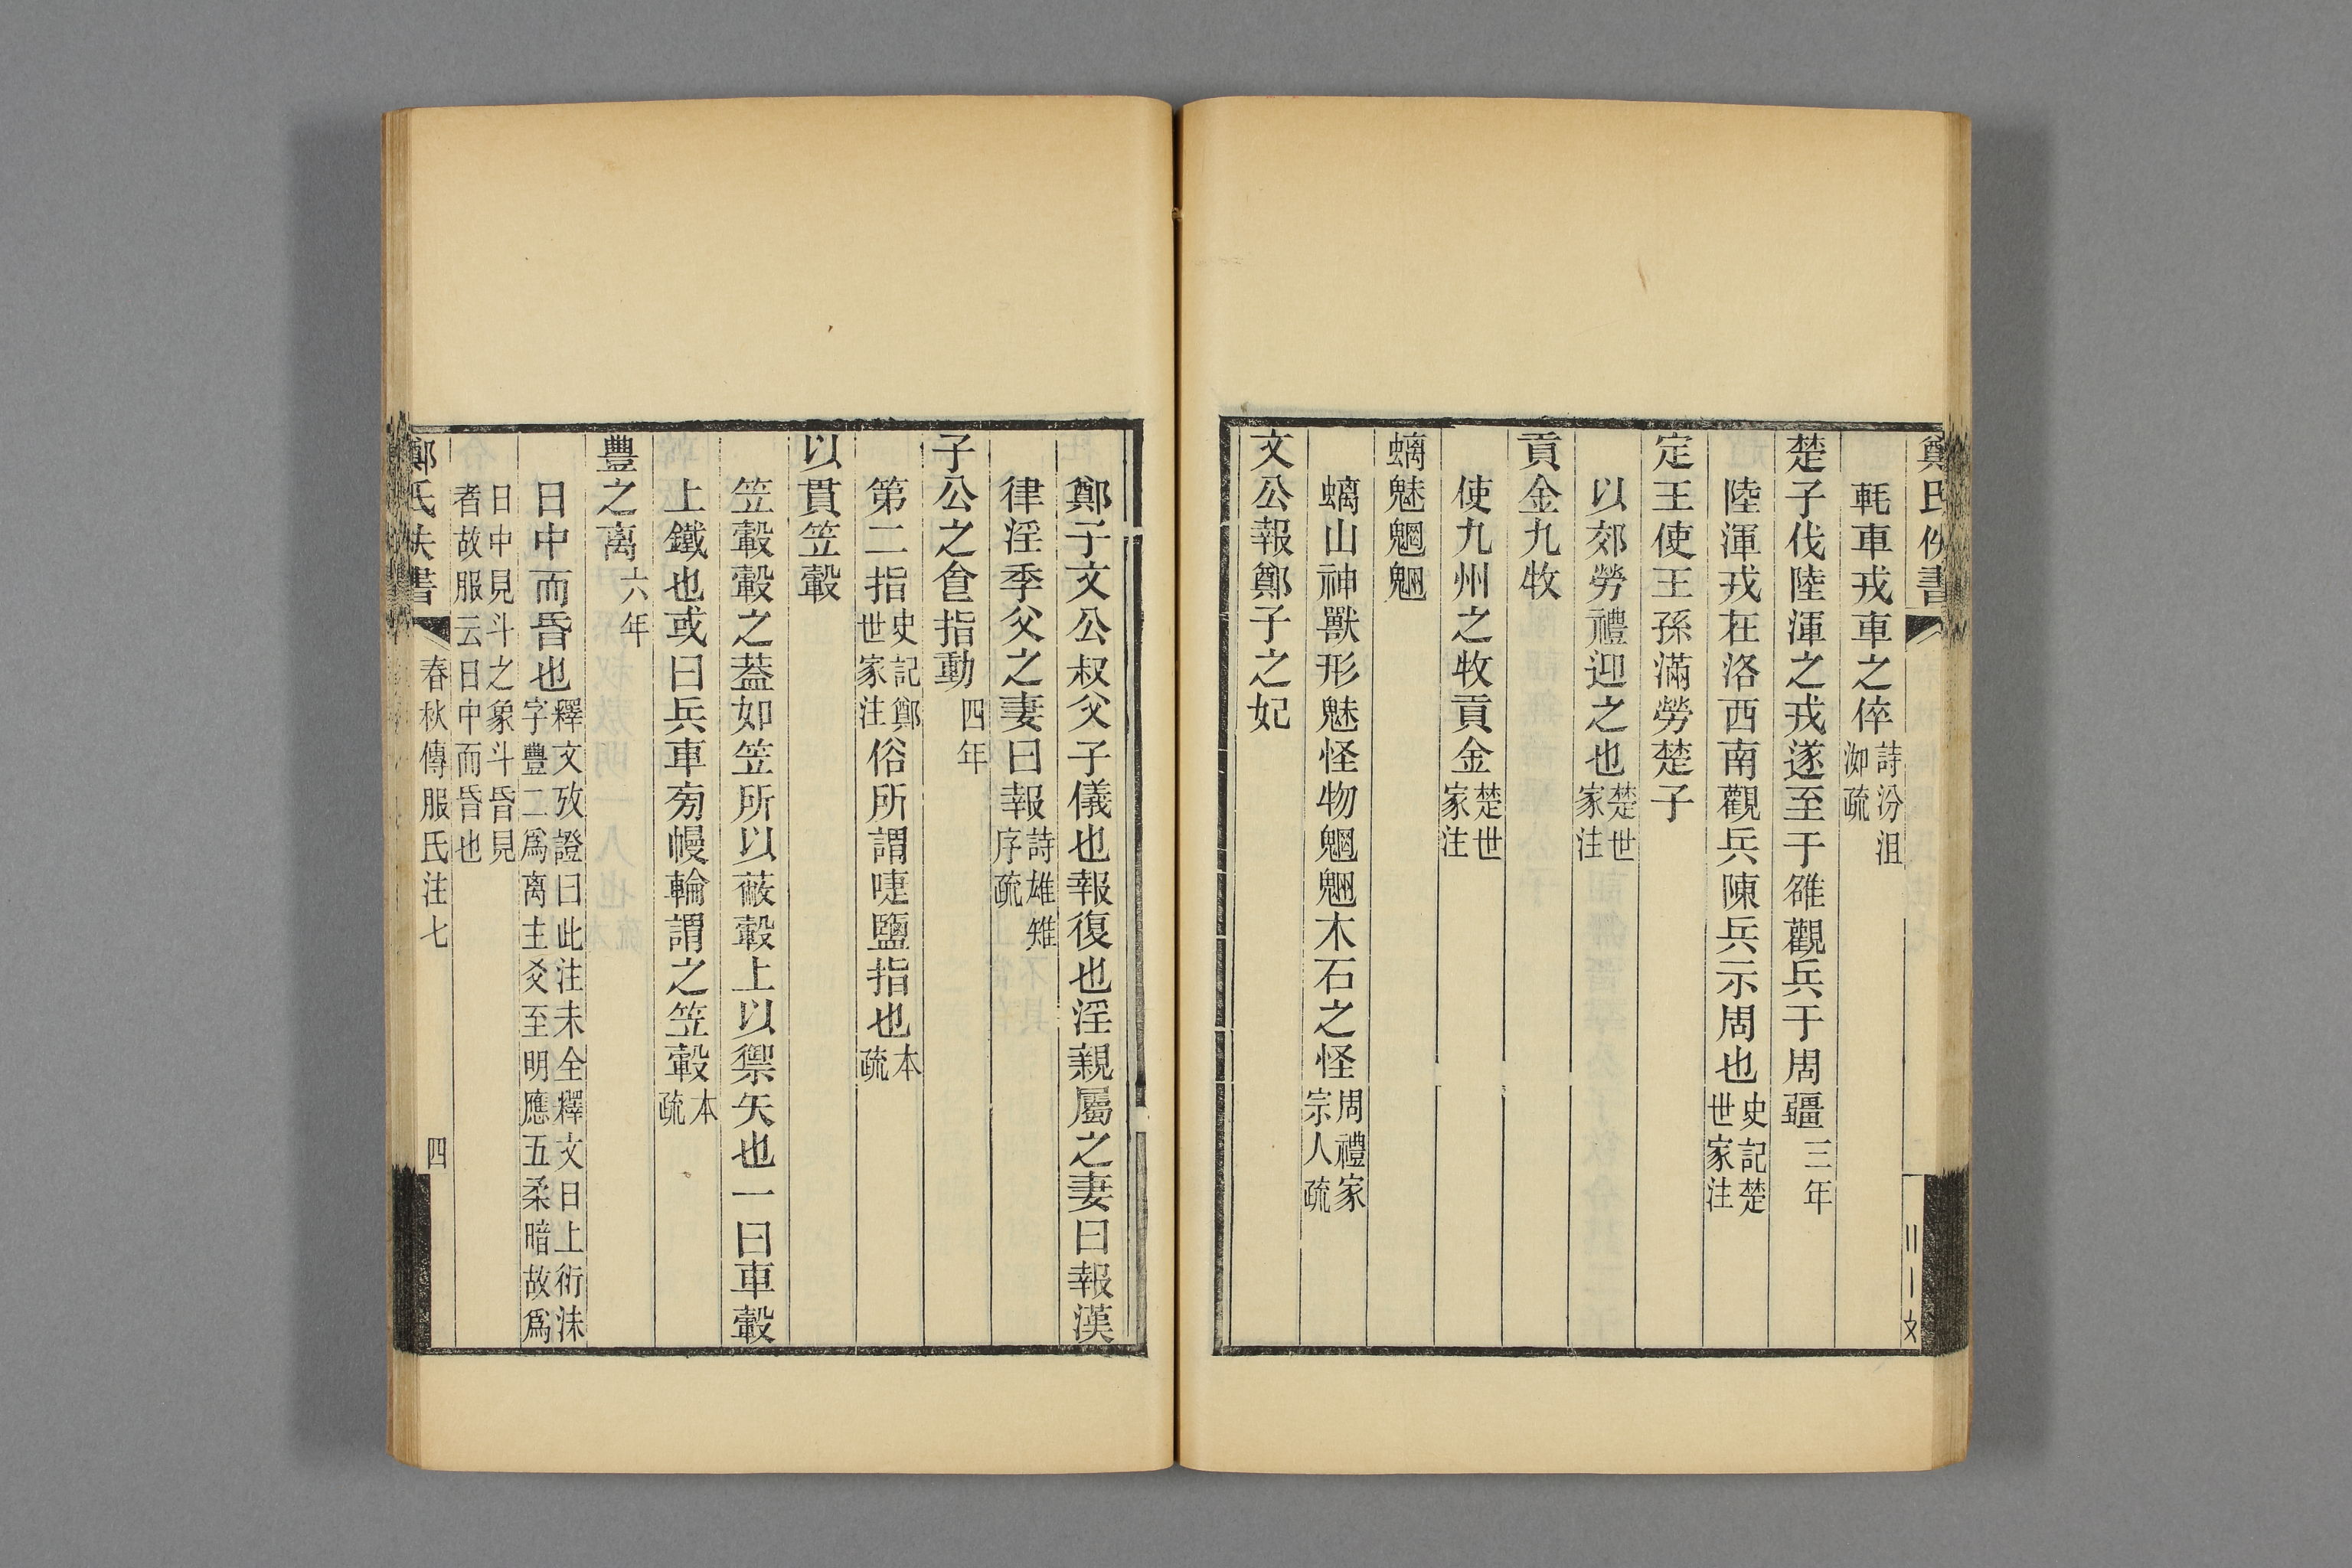 鄭氏佚書
軞車戎車之倅詩汾沮洳疏
楚子伐陸渾之戎遂至于雒觀兵于周疆三年
陸渾戎在洛西南觀兵陳兵示周也史記楚世家注
定王使王孫滿勞楚子
以郊勞禮迎之也楚世家注
貢金九牧
使九州之牧貢金楚世家注
螭魅魍魎
螭山神獸形魅怪物魍魎木石之怪周禮家宗人疏
文公報鄭子之妃
鄭子文公叔父子儀也報復也淫親屬之妻曰報漢
律淫季父之妻曰報詩雄雉序疏
子公之食指動四年
第二指史記鄭世家注俗所謂啑鹽指也本疏
以貫笠轂
笠轂轂之蓋如笠所以蔽轂上以禦矢也一曰車轂
上鐵也或曰兵車旁幔輪謂之笠轂本疏
豐之离六年
日中而昏也釋文攷證曰此注未全釋文日上衍沬字豐二為离主爻至明應五柔暗故為
日中見斗之象斗昏見者故服云日中而昏也
鄭氏佚書
春秋傳服氏注七
四